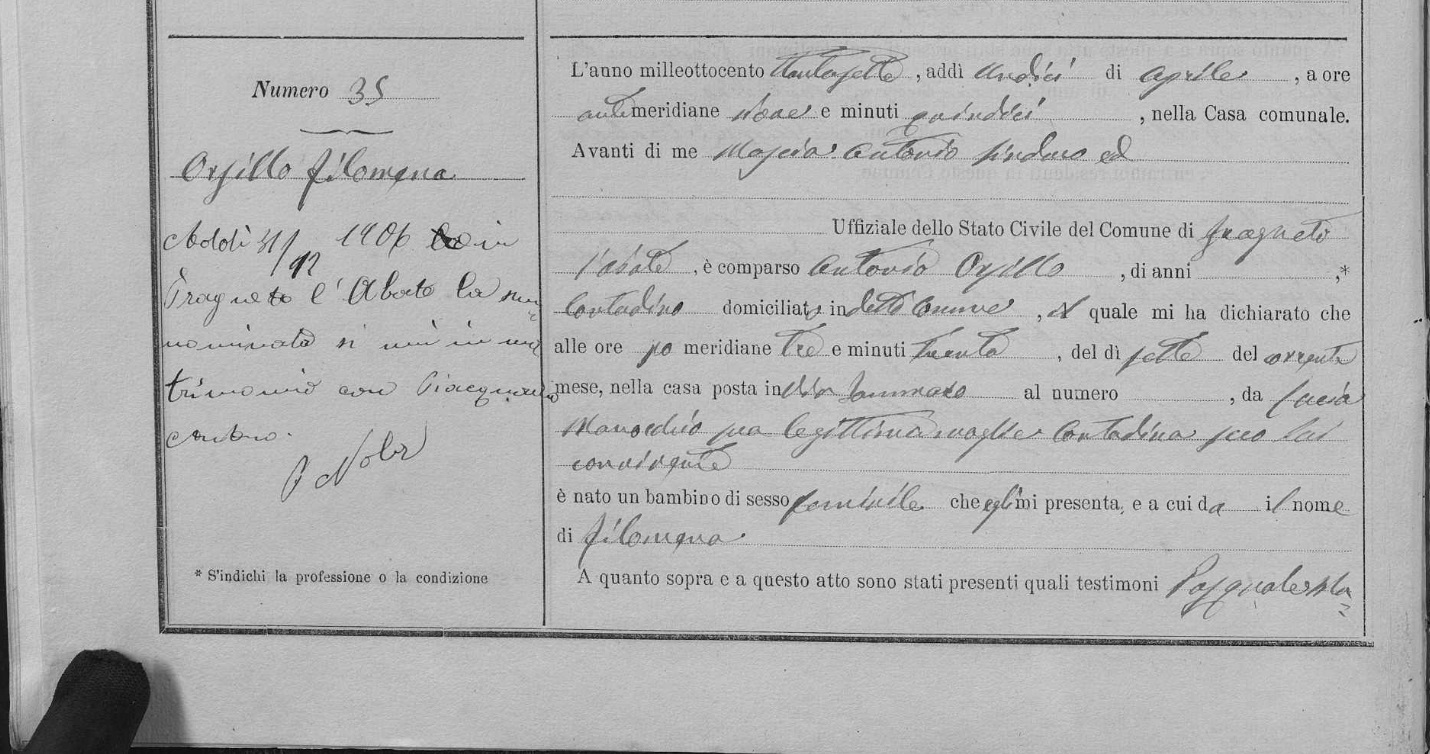 Numero 35
Orsillo Filomena
Addì 31/12 1906 in
Fragneto l'Abate la su=
nominata si unì in ma
trimonio con Giacquinto
P Nola
* S'indichi la professione o la condizione
L'anno milleottocento ttantasette, addì undici di Aprile, a ore
antimeridiane nove e minuti quindici, nella Casa comunale.
Avanti di me Mascia Antonio Sindaco ed
Uffiziale dello Stato Civile del Comune di Fragneto
l'abate, è comparso Antonio Orsillo, di anni ,*
Contadino domiciliato in detto Comune, il quale mi ha dichiarato che
alle ore po meridiane tre e minuti trenta, del dì sette del corrente
mese, nella casa posta in al numero , da Lucia
sua legittima moglie Contadina seco lui
convivente
è nato un bambino di sesso feminile che egli mi presenta, e a cui da il nome
di Filomena
A quanto sopra e a questo atto sono stati presenti quali testimoni Pasquale